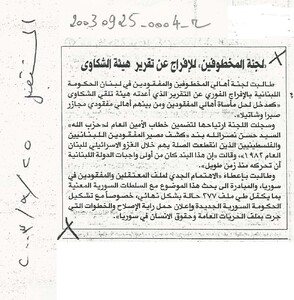 20030925_0004_r
«لجنة المخطوفين» للإفراج عن تقرير هيئة الشكاوى
طالبت لجنة أهالي المخطوفين والمفقودين في لبنان الحكومة
اللبنانية بالإفراج الفوري عن التقرير الذي أعدته هيئة تلقي الشكاوى
«كمدخل لحل مأساة أهالي المفقودين ومن بينهم أهالي مفقودي مجازر
صبرا وشاتيلا».
وسجلت اللجنة ارتياحها لتضمين خطاب الأمين العام لـ«حزب الله»
السيد حسن نصرالله بند «كشف مصير المفقودين اللبنانيين
والفلسطينيين الذين انقطعت الصلة بهم خلال الغزو الإسرائيلي للبنان
عام ١٩٨٢». وقالت «إن هذا البند كان من أولى واجبات الدولة اللبنانية
أن تحركه منذ زمن طويل».
وطالبت بإعطاء «الاهتمام الجدي لملف المعتقلين والمفقودين في
سوريا، والمبادرة الى بحث هذا الموضوع مع السلطات السورية المعنية
بما يكفل طي ملف ٢٧٧ حالة بشكل نهائي، خصوصاً مع تشكيل
الحكومة السورية الجديدة وإعلان حمل راية الإصلاح والخطوات التي
جرت بملف الحريات العامة وحقوق الانسان في سوريا».